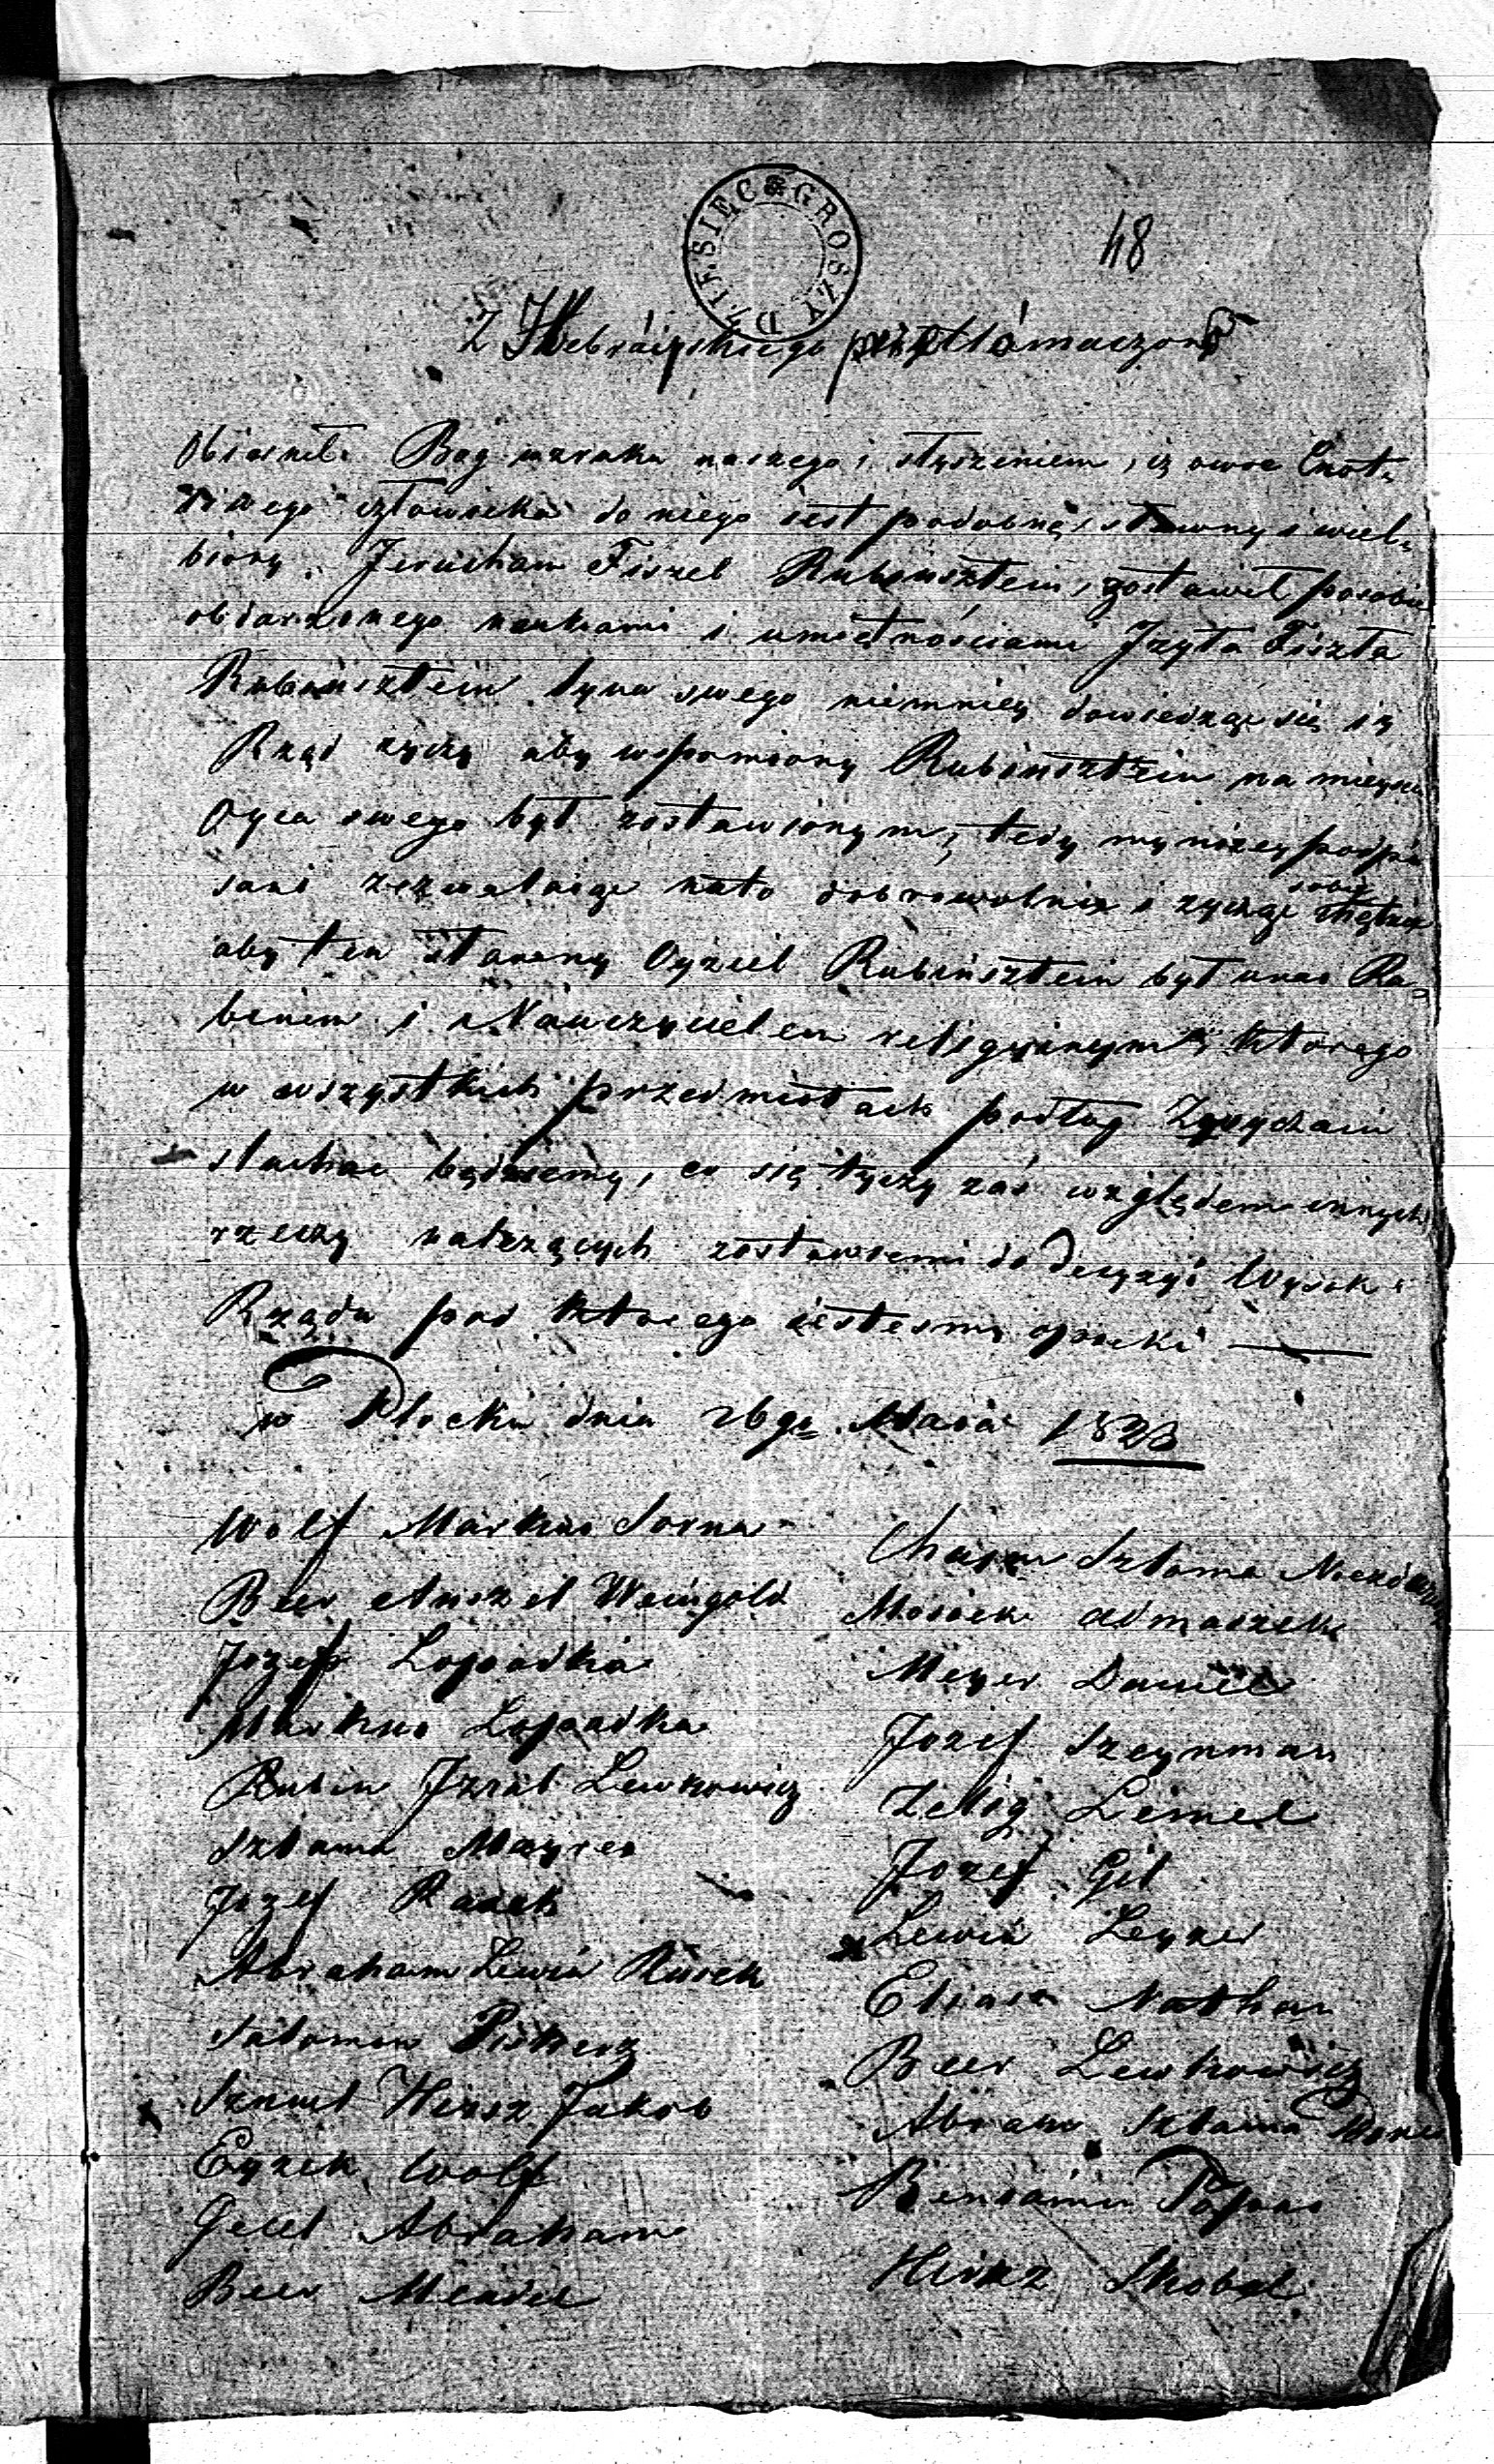 DZIESIĘC GROSZY
48
Z Hebráiyskiego przetłómaczone
Bog wzroku naszego i słyszeniem, iż owoc Cnot-
liwego człowieka do niego iest podobny, sławny i wiel-
biony. Jerucham Fiszel Rubinsztein, zostawił po sobie
obdarzonego naukami i umieiętnościami Jzyla Fiszla
Rubinsztein syna swego niemniey dowiedząc się iż
Rząd życzy aby wspomiony Rubinsztein na mieyscu
Oyca swego był zostawionym, tedy my niżey podpi-
sani zezwalaiąc na to dobrowolnie i zycząc sobie chętnie
aby ten sławny Oyziel Rubinsztein był u nas Ra-
binem i Nauczycielem religiynym, ktorego
w wszystkich przedmiotach podług Zwyczaiu
słuchac będziemy, co się tyczy zaś względem innych
rzeczy należących zostawiemi do Decyzyi Wysok.
Rządu pod ktorego iestesmy opieki
w Płocku dnia 26go Maia 1823
Wolf Markus Sorna
Beer Anszel Weingold
Jozef Lopadka
Markus Lopadka
Rubin Jzrael Lewkowicz
Szlama Mayer
Jozef Rasek
Abraham Lewin Rusek
Salomon Piekarz
Szmul Hersz Jakob
Eyzek Wolf
Gecel Abraham
Beer Mendel
Chaim Szlama
Mosiek Asmaszek
Meyer Daniel
Jozef Szeynman
Zelig Leimel
Jozef Gil
Lewin Leyzer
Eliasz Nathan
Beer Lewkowicz
Abram Szlama
Beniamin Papar
Hersz Skobel